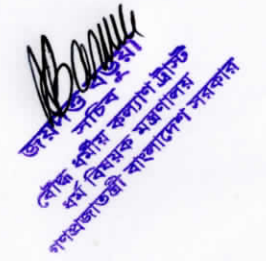 সচিব
বৌদ্ধ ধর্মীয় কল্যাণ ট্রাস্ট
ধর্ম বিষয়ক মন্ত্রণালয়
গণপ্রজাতন্ত্রী বাংলাদেশ সরকার